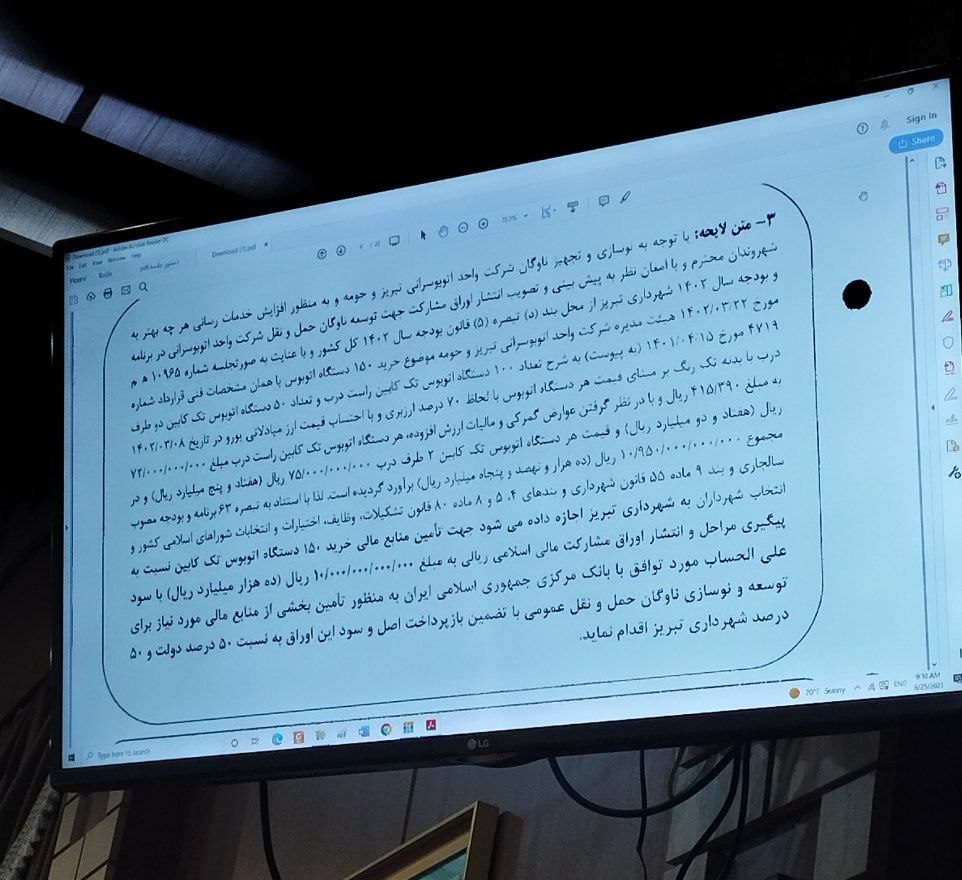 Download (1).pdf - Adobe Acrobat Reader DC
File Edit View Window Help
Home Tools دستور جلسه.pdf Download (1).pdf ×
Sign In
Share
4 / 22
72.3%
۳– متن لایحه: با توجه به نوسازی و تجهیز ناوگان شرکت واحد اتوبوسرانی تبریز و حومه و به منظور افزایش خدمات رسانی هر چه بهتر به
شهروندان محترم و با امعان نظر به پیش بینی و تصویب انتشار اوراق مشارکت جهت توسعه ناوگان حمل و نقل شرکت واحد اتوبوسرانی در برنامه
و بودجه سال ۱۴۰۲ شهرداری تبریز از محل بند (د) تبصره (۵) قانون بودجه سال ۱۴۰۲ کل کشور و با عنایت به صورتجلسه شماره ۱۰۹۶۵ ه م
مورخ ۱۴۰۲/۰۳/۲۲ هیئت مدیره شرکت واحد اتوبوسرانی تبریز و حومه موضوع خرید ۱۵۰ دستگاه اتوبوس با همان مشخصات فنی قرارداد شماره
۴۷۱۹ مورخ ۱۴۰۱/۰۴/۱۵ (به پیوست) به شرح تعداد ۱۰۰ دستگاه اتوبوس تک کابین راست درب و تعداد ۵۰ دستگاه اتوبوس تک کابین دو طرف
درب با بدنه تک رنگ بر مبنای قیمت هر دستگاه اتوبوس با لحاظ ۷۰ درصد ارزبری و با احتساب قیمت ارز مبادلاتی یورو در تاریخ ۱۴۰۲/۰۳/۰۸
به مبلغ ۴۱۵/۳۹۰ ریال و با در نظر گرفتن عوارض گمرکی و مالیات ارزش افزوده، هر دستگاه اتوبوس تک کابین راست درب مبلغ ۷۲/۰۰۰/۰۰۰/۰۰۰
ریال (هفتاد و دو میلیارد ریال) و قیمت هر دستگاه اتوبوس تک کابین ۲ طرف درب ۷۵/۰۰۰/۰۰۰/۰۰۰ ریال (هفتاد و پنج میلیارد ریال) و در
مجموع ۱۰/۹۵۰/۰۰۰/۰۰۰/۰۰۰ ریال (ده هزار و نهصد و پنجاه میلیارد ریال) برآورد گردیده است. لذا با استناد به تبصره ۶۳ برنامه و بودجه مصوب
سالجاری و بند ۹ ماده ۵۵ قانون شهرداری و بندهای ۴، ۵ و ۸ ماده ۸۰ قانون تشکیلات، وظایف، اختیارات و انتخابات شوراهای اسلامی کشور و
انتخاب شهرداران به شهرداری تبریز اجازه داده می شود جهت تأمین منابع مالی خرید ۱۵۰ دستگاه اتوبوس تک کابین نسبت به
پیگیری مراحل و انتشار اوراق مشارکت مالی اسلامی ریالی به مبلغ ۱۰/۰۰۰/۰۰۰/۰۰۰/۰۰۰ ریال (ده هزار میلیارد ریال) با سود
علی الحساب مورد توافق با بانک مرکزی جمهوری اسلامی ایران به منظور تأمین بخشی از منابع مالی مورد نیاز برای
توسعه و نوسازی ناوگان حمل و نقل عمومی با تضمین بازپرداخت اصل و سود این اوراق به نسبت ۵۰ درصد دولت و ۵۰
درصد شهرداری تبریز اقدام نماید.
Type here to search
70°F Sunny
ENG
9:10 AM
6/25/2023
LG